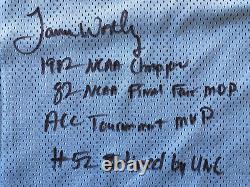 James Worthy
1982 NCAA Champs
82 NCAA Final Four M.O.P.
ACC Tournament MVP
#52 Retired by UNC